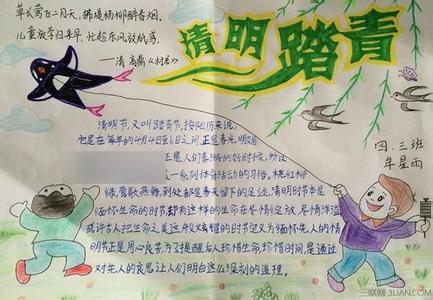 草长莺飞二月天，拂堤杨柳醉春烟。
儿童放学归来早，忙趁东风放纸鸢。
——清 高鼎《村居》
清明踏青
四、三班
牟星雨
清明节，又叫踏青节，按阳历来说，
它是在每年的4月4日至6日之间，正是春光明媚
正是人们春游的好时候，所以
一系列体育活动的习俗。桃红柳
绿，莺歌燕舞，到处都是春天留下的足迹，清明时节本是
缅怀生命的时节，却有这样的生命在尽情绽放，尽情洋溢
或许古人把生命之美这般的时节定义为缅怀先人的清
明节正是用心良苦，为了提醒后人珍惜生命珍惜时间，是通过
对先人的哀思让人们明白这么深刻的道理。
三联网 3LIAN.COM